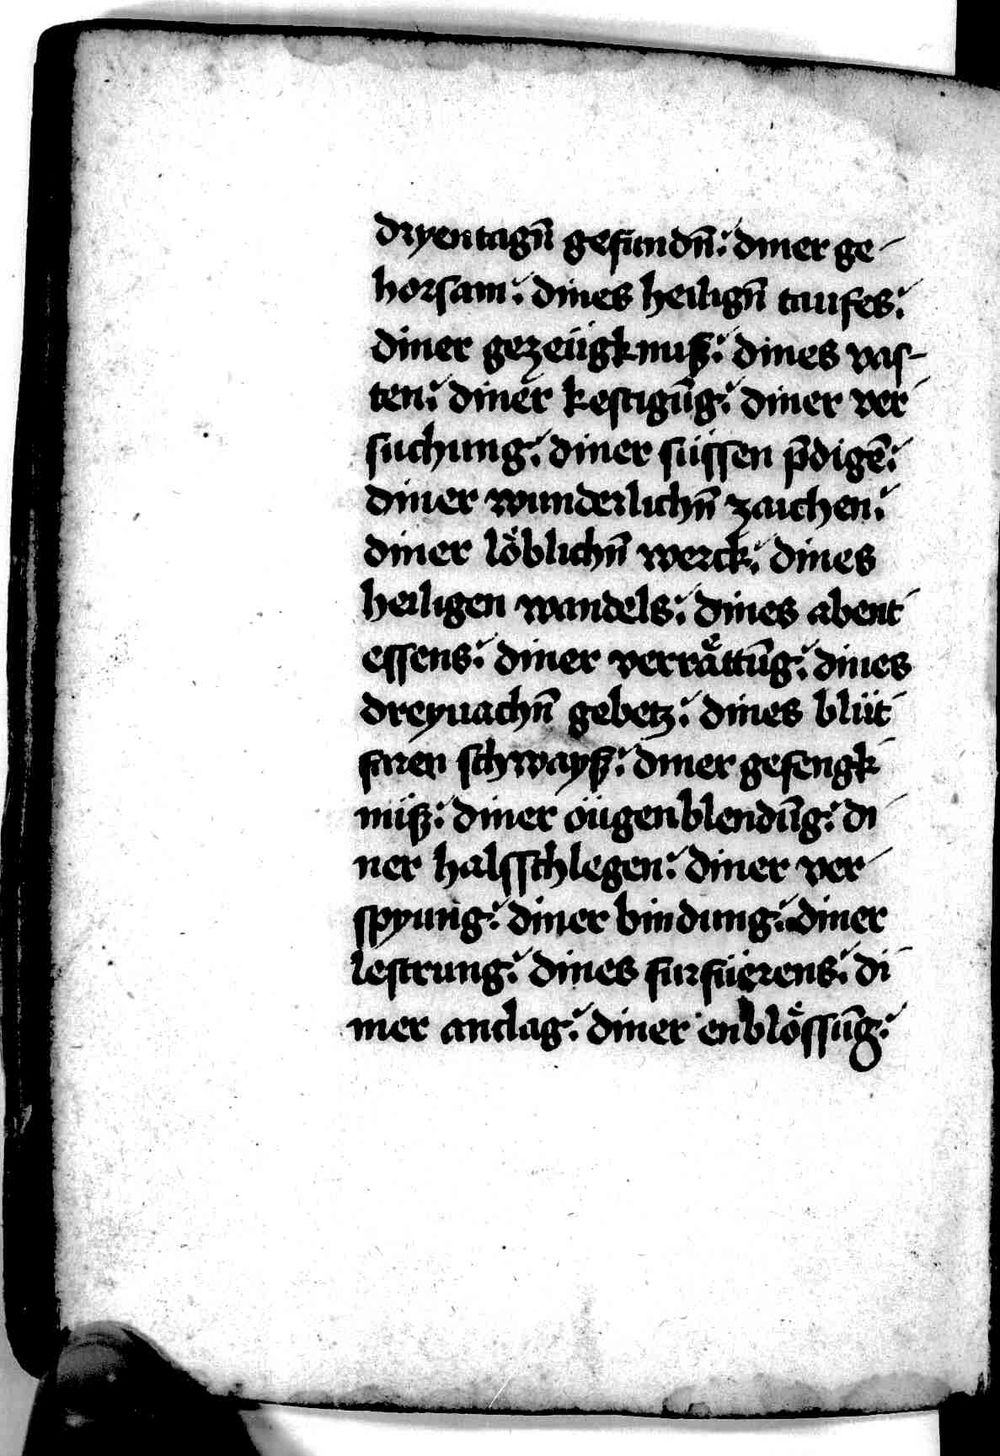 dryen tagn̄ gefundn̄: diner ge-
horsam: dines heilign̄ taufes:
diner gezeügknuß: dines vas-
ten: diner kestigūg: diner ver
suchung: diner süssen p̄digē:
diner wunderlichn̄ zaichen:
diner löblichn̄ werck: dines
heiligen wandels: dines abent
essens: diner verraͤttūg: dines
dreyuachn̄ gebetz: dines blüt
faren schwayß: diner gefengk
nüß: diner oügenblendūg: di
ner halsschlegen: diner ver
spyung: diner bindung: diner
lestrung: dines furfüerens: di
ner anclag: diner enblössūg: